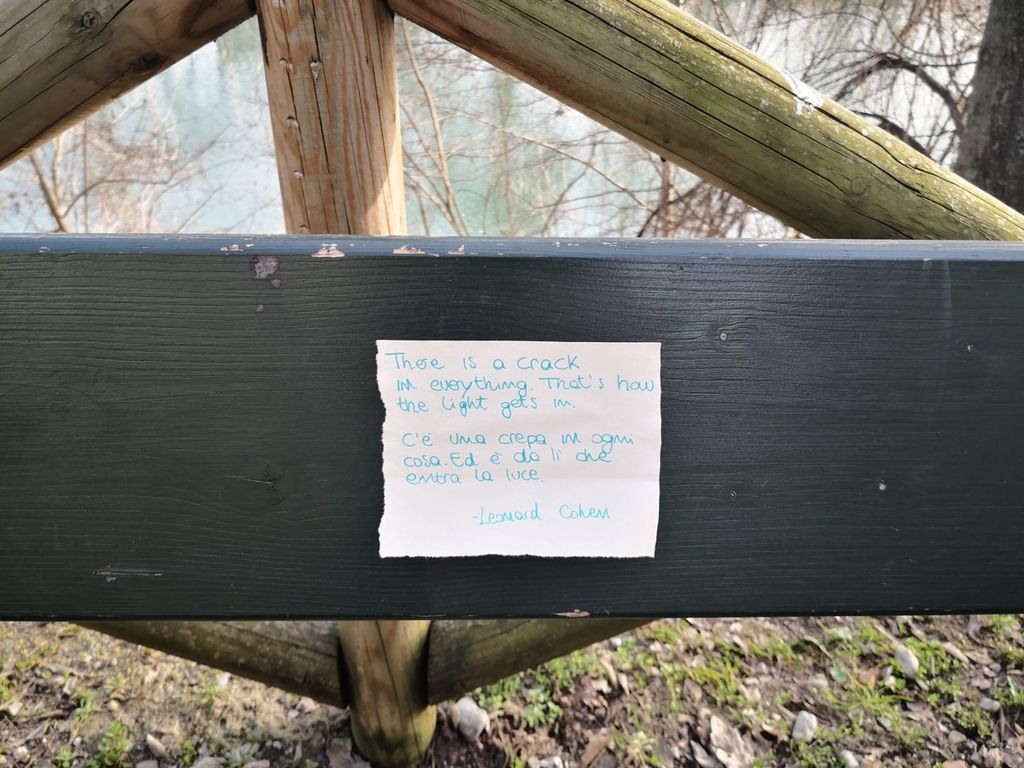 There is a crack
in everything. That's how
the light gets in.
C'è una crepa in ogni
cosa. Ed è da lì che
entra la luce.
-Leonard Cohen